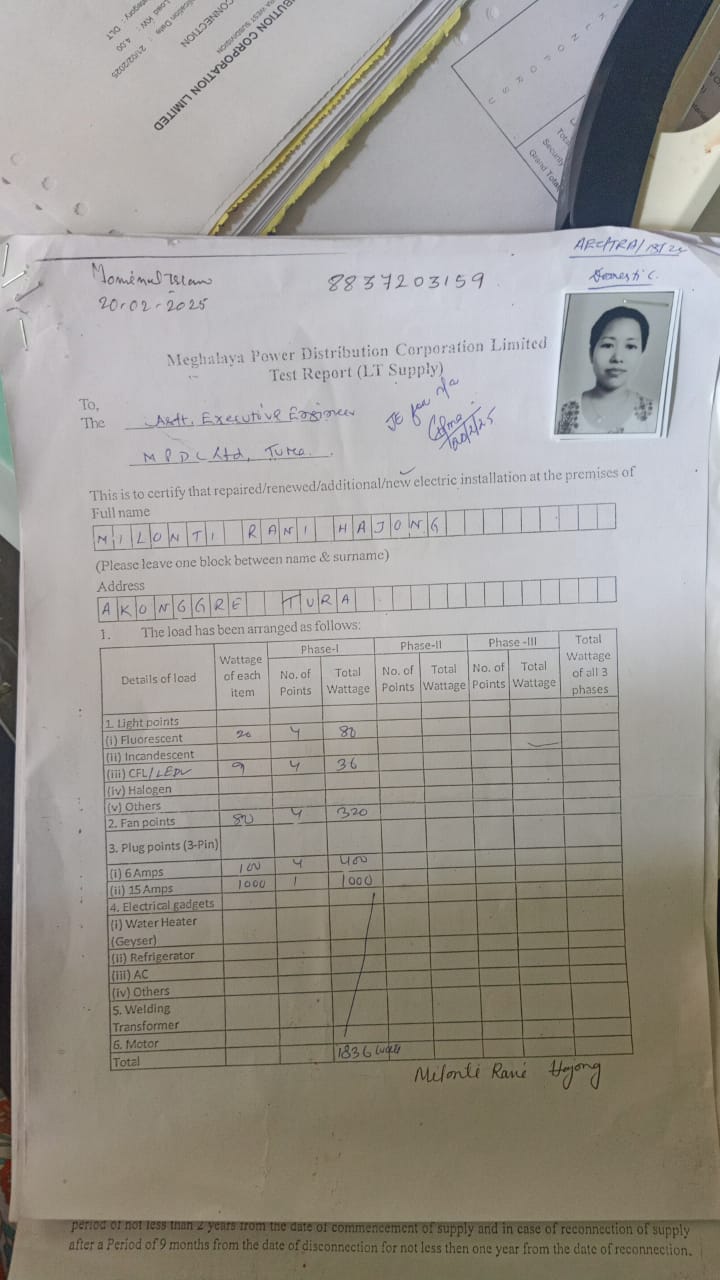 BUTION CORPORATION LIMITED
WEST SUBDIVISION
CONNECTION
21/02/2025
Load KW : 4.00
Category : DLT
Security
Grand Total
Domestic
Momenul Islam
20-02-2025
8837203159
Meghalaya Power Distribution Corporation Limited
Test Report (LT Supply)
To,
The Asstt. Executive Engineer
JE for n/a
MPDC Ltd, Tura.
This is to certify that repaired/renewed/additional/new electric installation at the premises of
Full name
MILONTI RANI HAJONG
(Please leave one block between name & surname)
Address
AKONGGRE TURA
1. The load has been arranged as follows:
Details of load Wattage of each item Phase-I No. of Points Total Wattage Phase-II No. of Points Total Wattage Phase -III No. of Points Total Wattage Total Wattage of all 3 phases
1. Light points
(i) Fluorescent 20 4 80
(ii) Incandescent
(iii) CFL/LED 9 4 36
(iv) Halogen
(v) Others
2. Fan points 80 4 320
3. Plug points (3-Pin)
(i) 6 Amps 100 4 400
(ii) 15 Amps 1000 1 1000
4. Electrical gadgets
(i) Water Heater
(Geyser)
(ii) Refrigerator
(iii) AC
(iv) Others
5. Welding
Transformer
6. Motor
Total 1836 watts
Milonti Rani Hajong
period of not less than 2 years from the date of commencement of supply and in case of reconnection of supply
after a Period of 9 months from the date of disconnection for not less then one year from the date of reconnection.